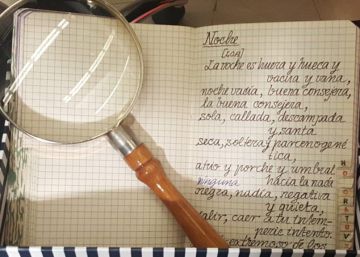 Noche
La noche es huera y hueca y
vacua y vana,
noche vadía, buena consejera,
la buena consejera,
sola, callada, descampada
y santa
seca, soltera y partenogené
tica,
atrio y porche y umbral
ninguna hacia la nada
negra, nadia, negativa
y quieta,
salir, caer a tu intem-
perie intento.
extremoso de los